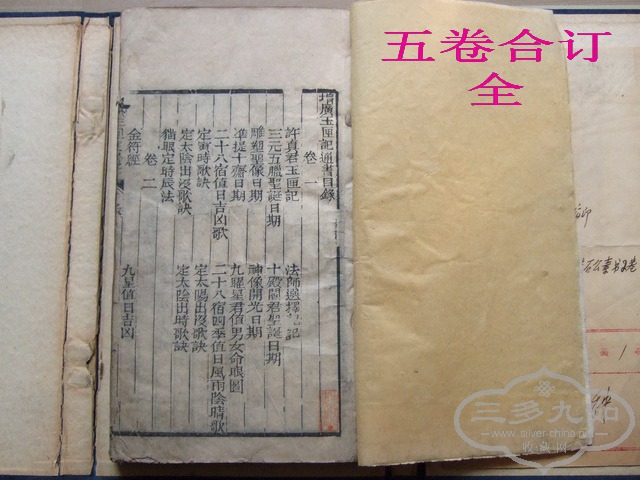 五卷合订
全
增廣玉匣記通書目錄
卷一
許真君玉匣記
法師選擇記
三元五臘聖誕日期
十殿閻君聖誕日期
雕塑聖像日期
神像開光日期
準提十齋日期
九曜星君值男女命限圖
二十八宿值日吉凶歌
二十八宿四季值日風雨陰晴歌
定寅時歌訣
定太陽出沒歌訣
定太陰出沒歌訣
定太陰出時歌訣
貓眼定時辰法
卷二
金符經
九星值日吉凶
三多九如
www.silver-china.net
收藏网